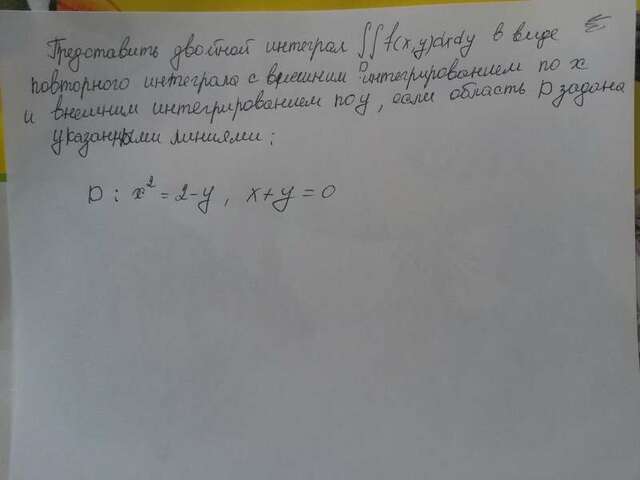 Представить двойной интеграл ∬f(x,y)dxdy в виде
D
повторного интеграла с внешним интегрированием по x
и внешним интегрированием по y, если область D задана
указанными линиями:
D: x² = 2-y, x+y=0